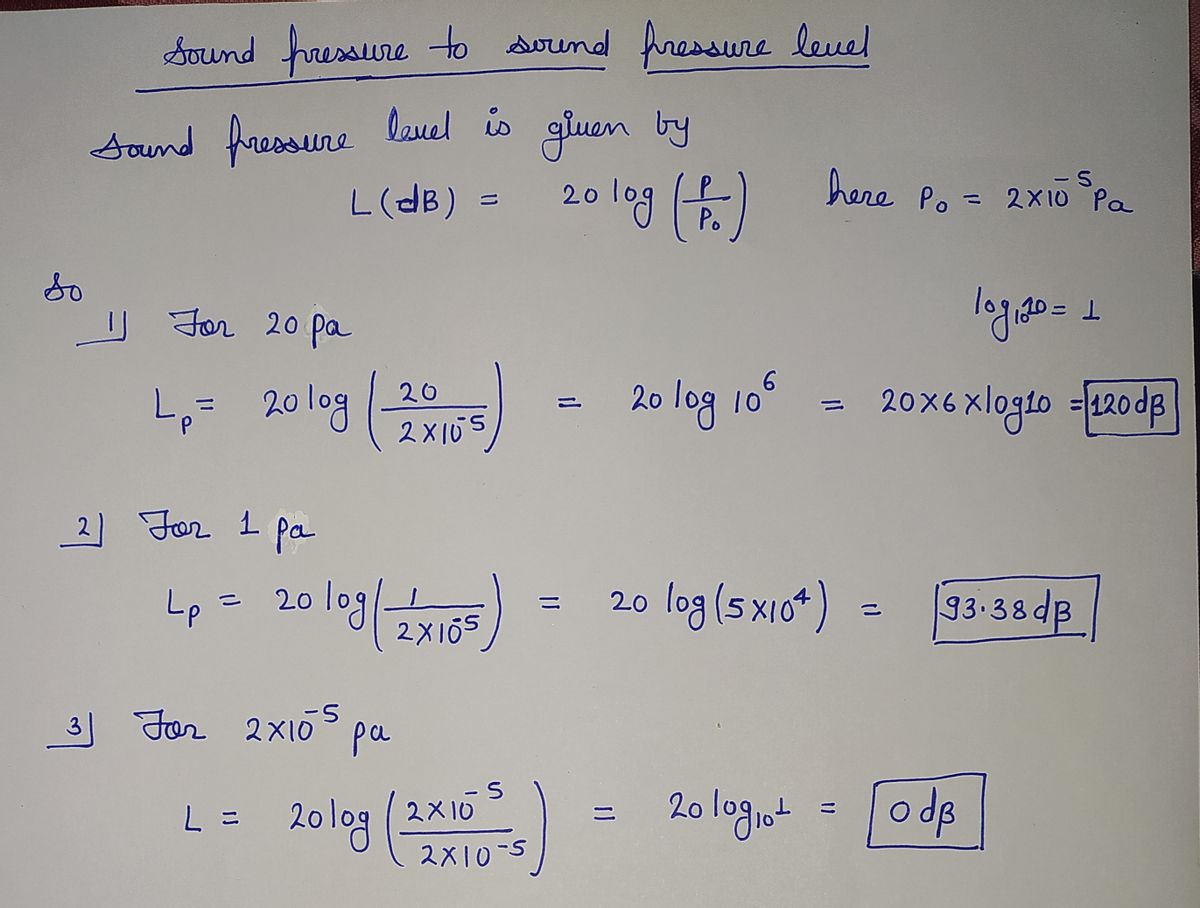 Sound pressure to sound pressure level
Sound pressure level is given by
L(dB) = 20 log (P/P₀) here P₀ = 2×10⁻⁵ Pa
So
1) For 20 pa log₁₀10 = 1
Lₚ = 20 log (20/2×10⁻⁵) = 20 log 10⁶ = 20×6×log10 = 120 dB
2) For 1 pa
Lₚ = 20 log (1/2×10⁻⁵) = 20 log (5×10⁴) = 93.38 dB
3) For 2×10⁻⁵ pa
L = 20 log (2×10⁻⁵/2×10⁻⁵) = 20 log₁₀1 = 0 dB